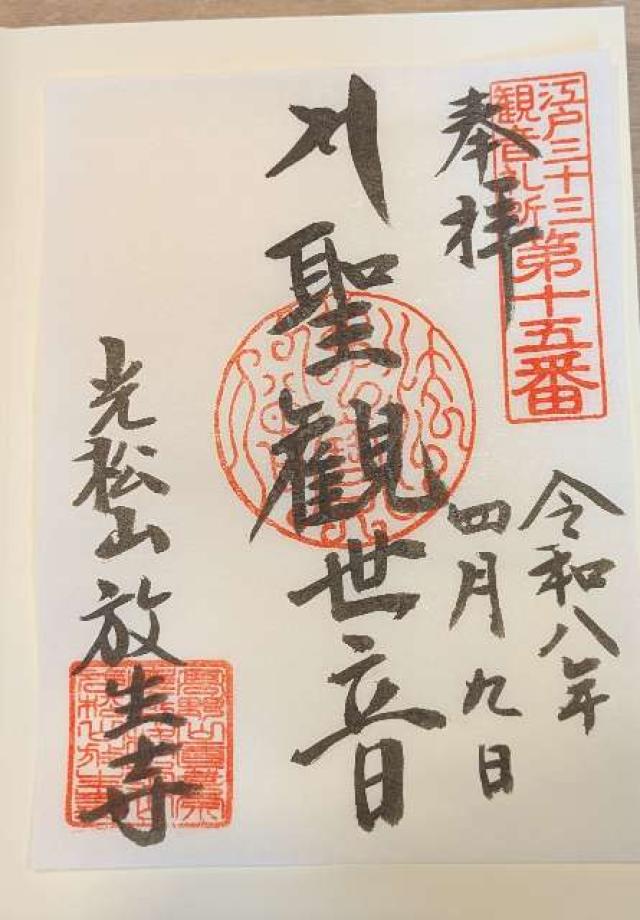 江戸三十三
観音札所
第十五番
奉拝
令和八年
四月九日
聖観世音
光松山 放生寺